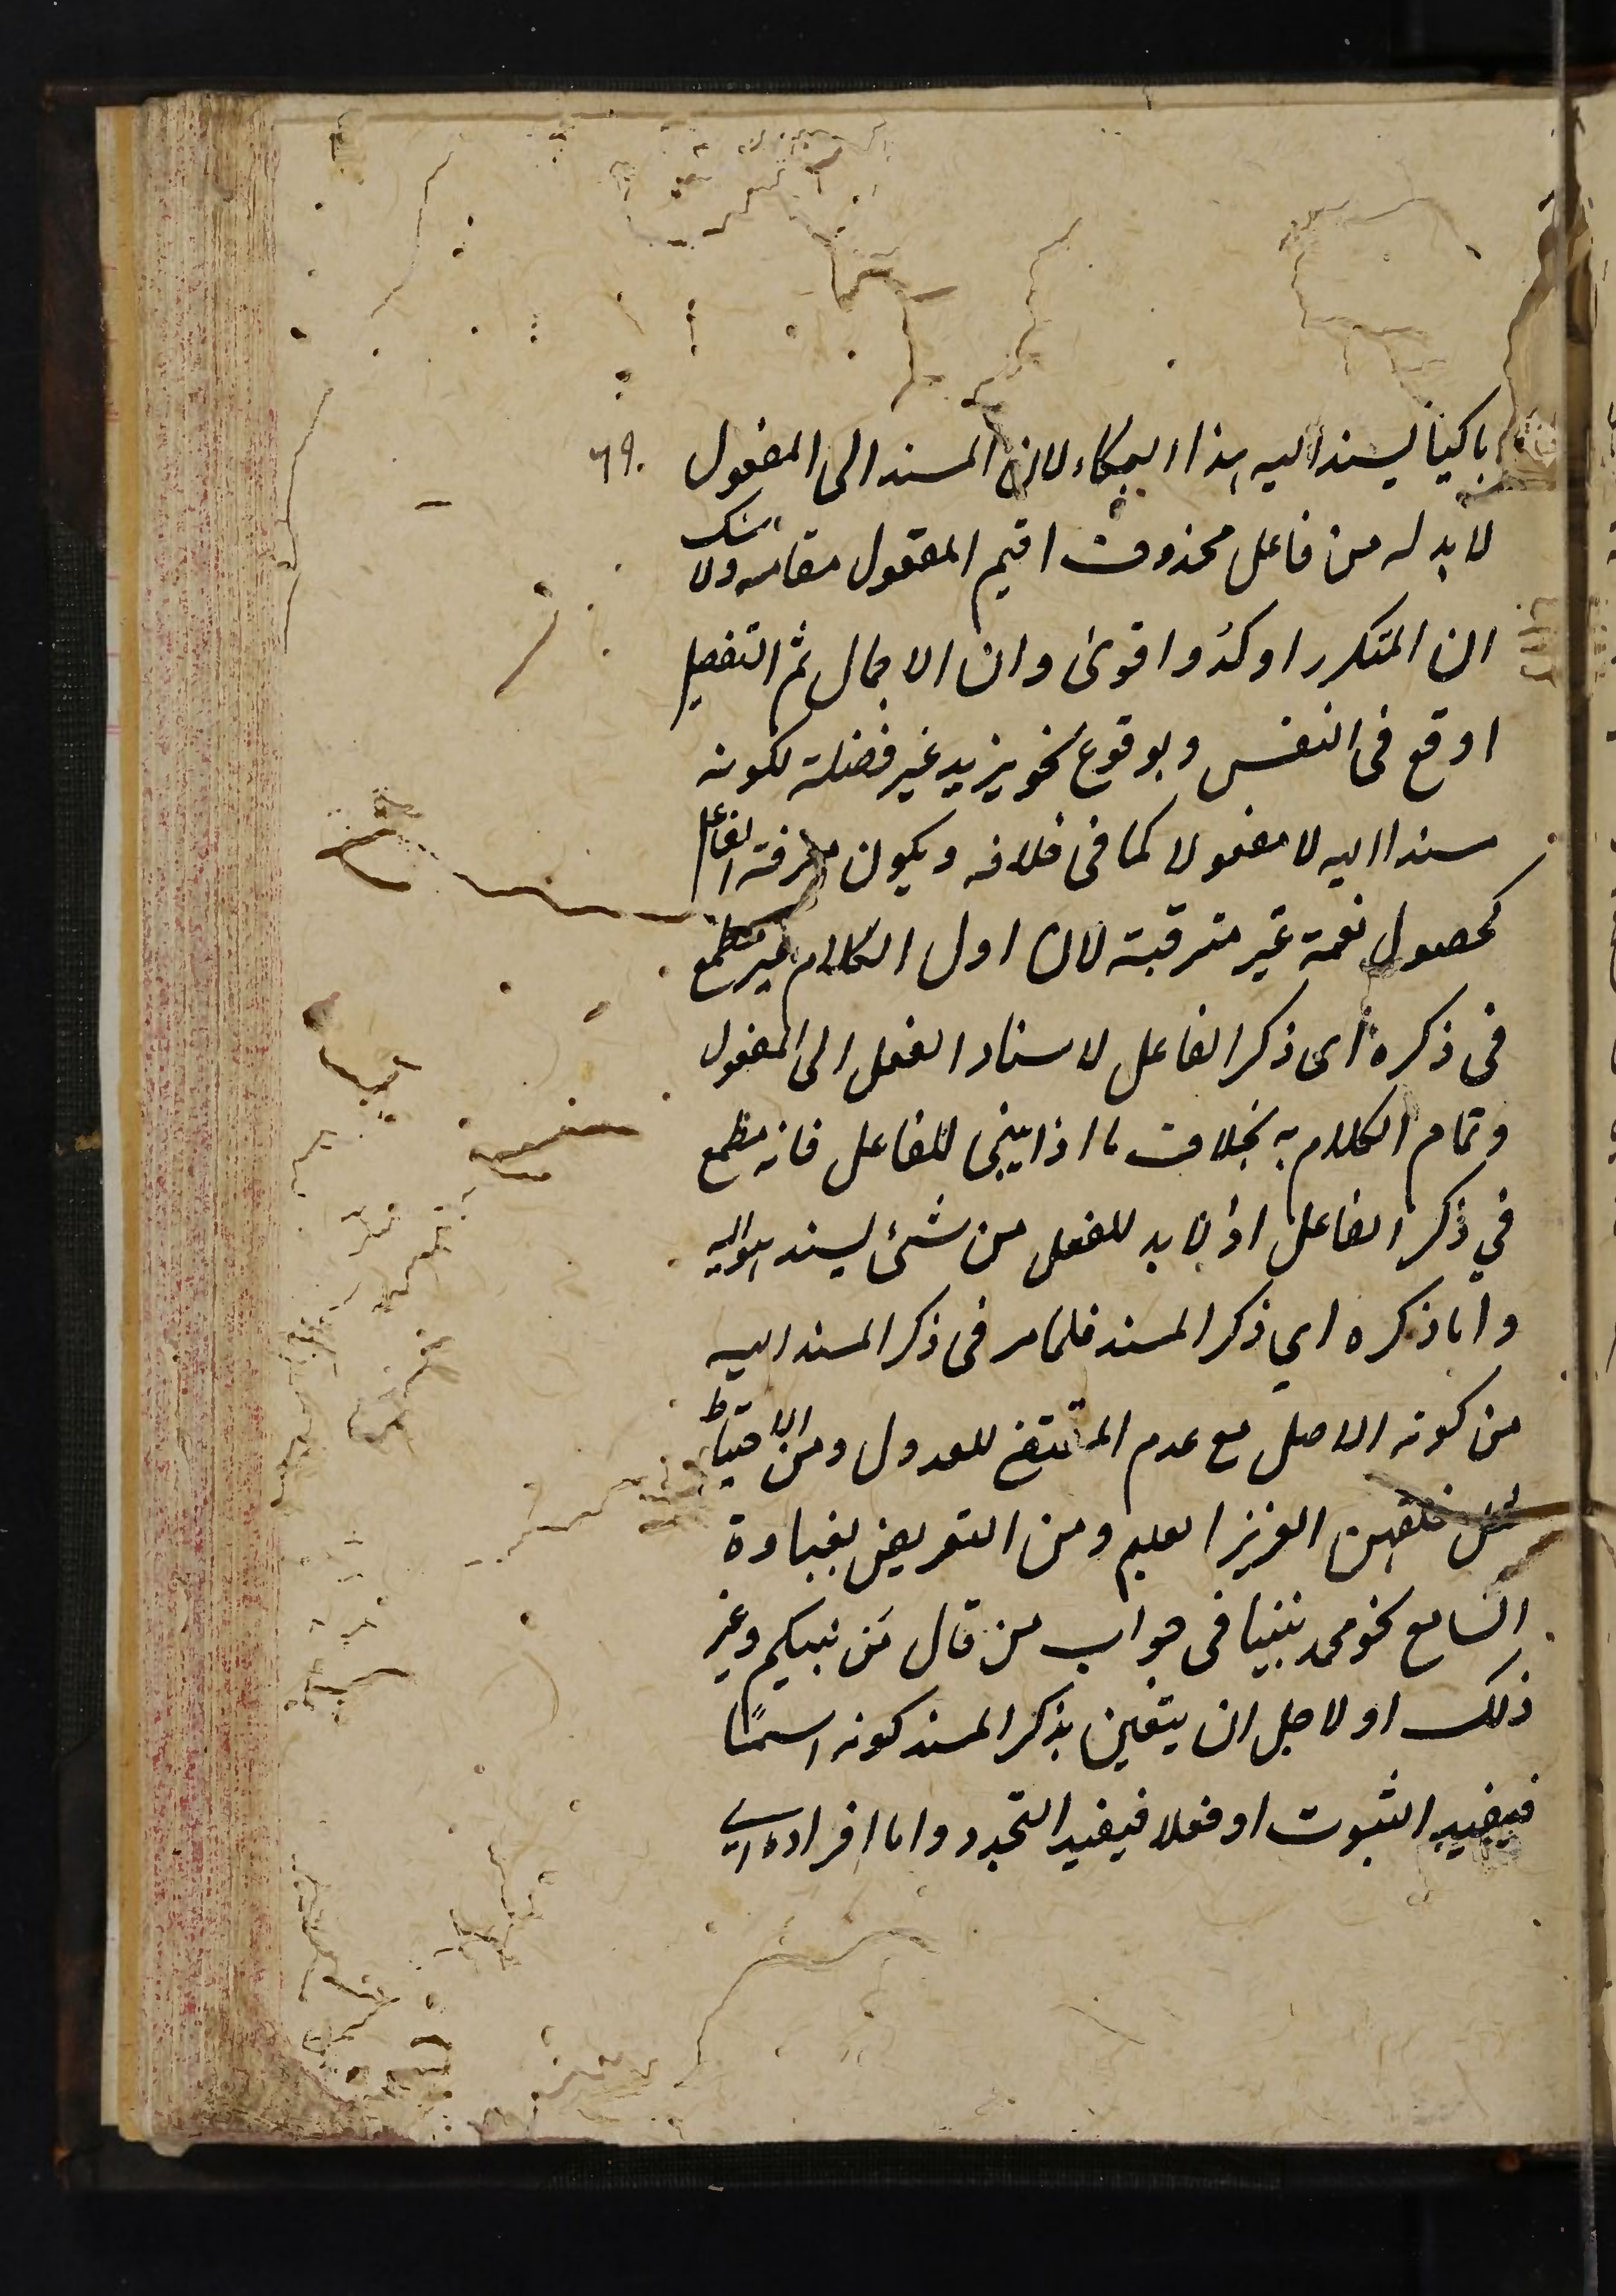 باكيا يسند اليه هذا البكاء لان المسند الى المفعول ٦٩٠
لا بد له من فاعل محذوف اقيم المفعول مقامه ولا شك
ان المتكرر اوكد واقوى وان الاجمال ثم التفصيل
اوقع فى النفس وبوقوع نحو يزيد غير فضلة لكونه
مسندا اليه لا مفعولا كما فى خلافه ويكون معرفة الفاعل
كحصول نعمة غير مترقبة لان اول الكلام غير مطمع
فى ذكره اى ذكر الفاعل لاسناد الفعل الى المفعول
وتمام الكلام به بخلاف ما اذا بنى للفاعل فانه مطمع
في ذكر الفاعل اذ لا بد للفعل من شئ يسند هو اليه
واما ذكره اي ذكر المسند فلما مر فى ذكر المسند اليه
من كونه الاصل مع عدم المقتضى للعدول ومن الاحتياط
مثل خلقهن العزيز العليم ومن التعريض بغباوة
السامع نحو محمد نبينا فى جواب من قال من نبيكم وغير
ذلك او لاجل ان يتعين بذكر المسند كونه اسمًا
فيفيد الثبوت او فعلا فيفيد التجدد واما افراده اى